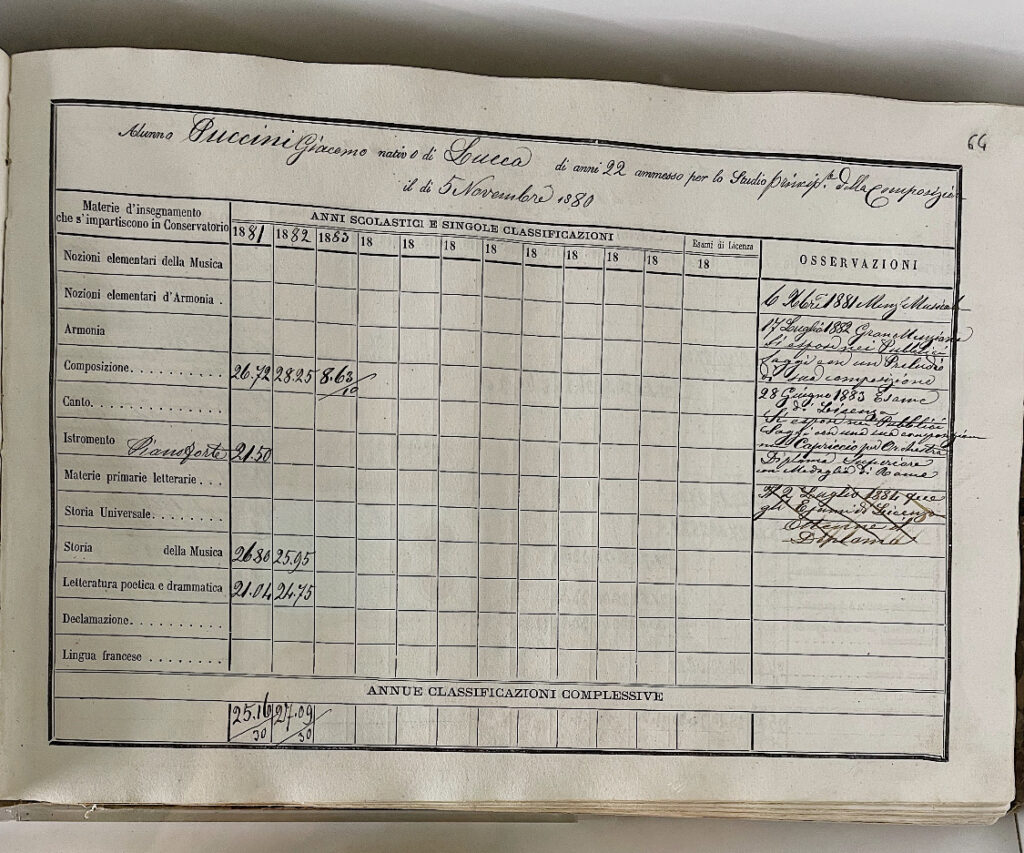 64
Alunno Puccini Giacomo nativo di Lucca di anni 22 ammesso per lo Studio princip.e della Composizion
il di 5 Novembre 1880
Materie d'insegnamento
che s'impartiscono in Conservatorio
ANNI SCOLASTICI E SINGOLE CLASSIFICAZIONI
1881 1882 1883 18 18 18 18 18 18 18 18
Esami di Licenza
18
OSSERVAZIONI
Nozioni elementari della Musica
Nozioni elementari d'Armonia .
Armonia
Composizione. . . . . . . . . . 26.72 28.25 8.63/10
Canto. . . . . . . . . . . . .
Istromento Pianoforte 21.50
Materie primarie letterarie . . .
Storia Universale. . . . . . . .
Storia della Musica 26.80 25.95
Letteratura poetica e drammatica 21.04 24.75
Declamazione. . . . . . . . . .
Lingua francese . . . . . . . .
6 Xbre 1881 Menz. Musicale
17 Luglio 1882 Gran Menzione
Si espose nei Pubblici
Saggi con un Preludio
di sua composizione
28 Giugno 1883 Esame
di Licenza
Si espose nei Pubblici
Saggi con una sua composizione
Capriccio per Orchestra
Diploma Superiore
con Medaglia di Rame
2 Luglio 1884 fece
gli Esami di Licenza
Ottenne il
Diploma
ANNUE CLASSIFICAZIONI COMPLESSIVE
25.16/30 27.09/30